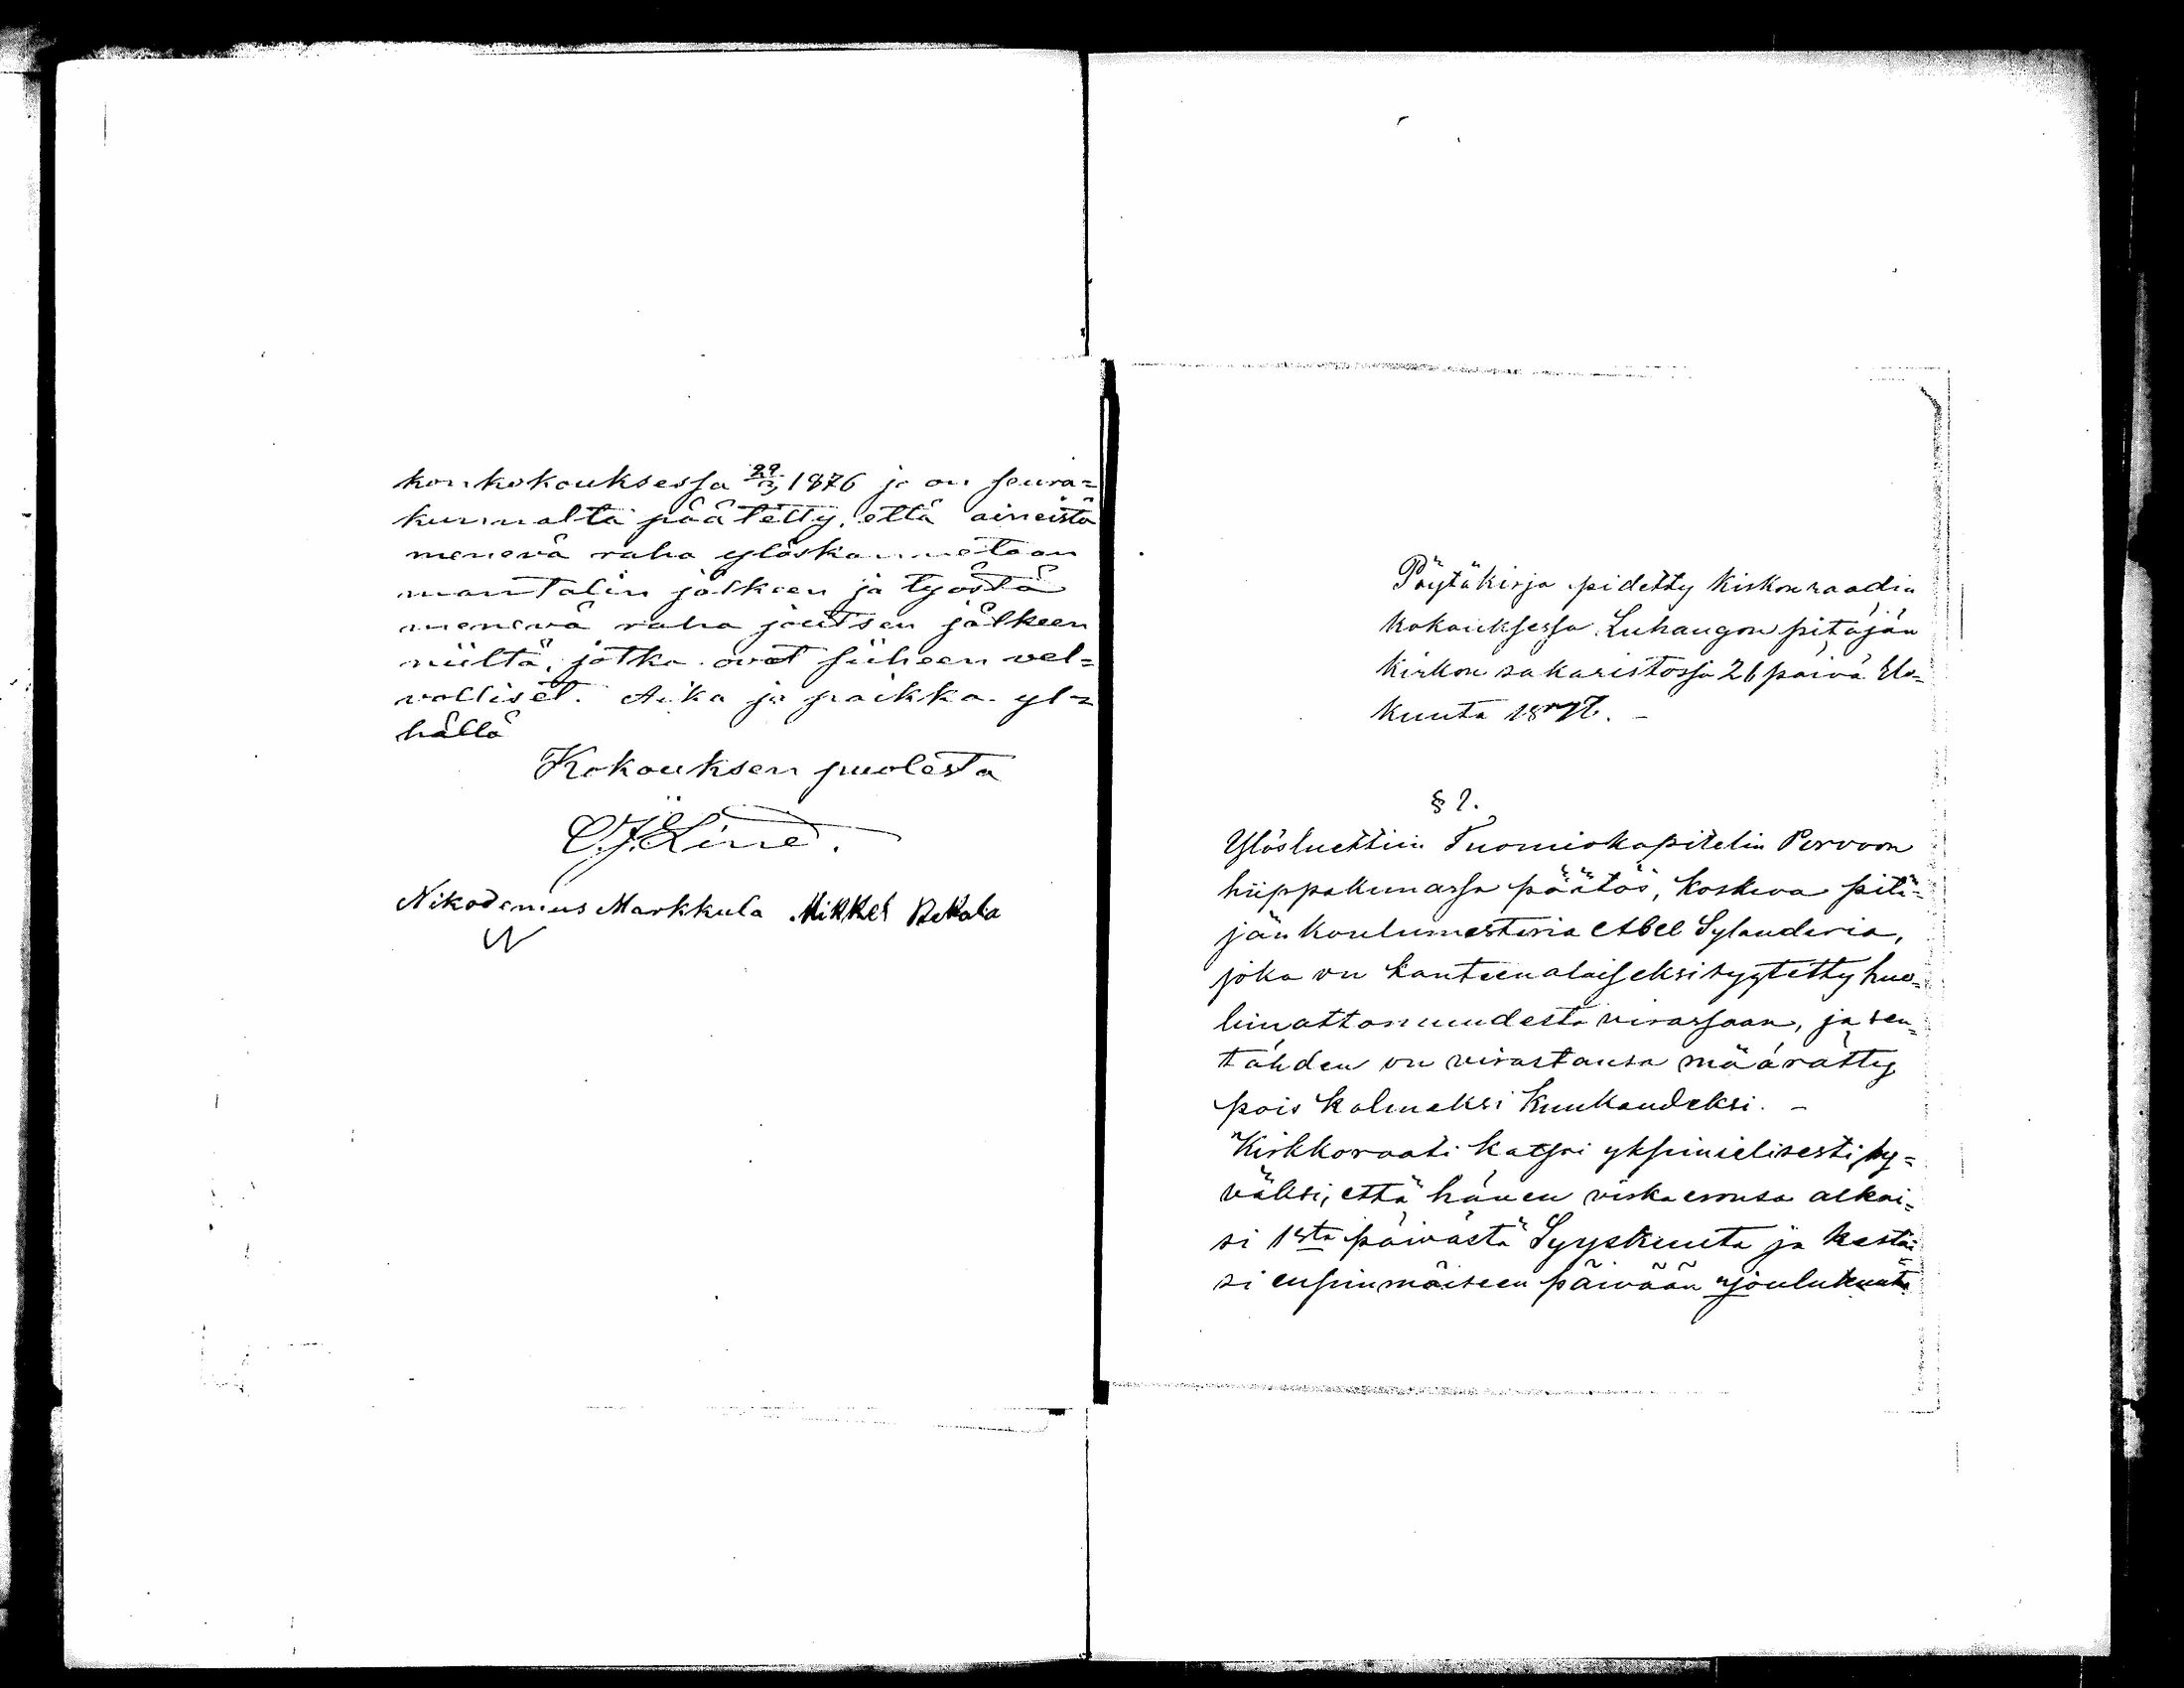 konkokouksessa 29/3 1876 ja on seura=
kunnalta päätetty, että aineista
menevä raha ylöskannetaan
mantalin jälkeen ja työstä
menevä raha joutsen jälkeen
niiltä, jotka ovat siiheen vel=
volliset. Aika ja paikka yl=
hällä
Kokouksen puolesta
C. J. Lind.
Nikodemus Markkula Mikkel Pekala
Pöytäkirja pidetty Kirkonraadin
kokouksessa Luhangon pitäjän
kirkon sakaristossa 26 päivä Elo=
kuuta 1876. –
§ 1.
Ylösluettiin Tuomiokapitelin Porvoon
hiippakunnassa päätös, koskeva pitä=
jän koulumesteria Abel Sylanderia,
joka on kanteenalaiseksi syytetty huo=
limattomuudesta virassaan, ja sen=
tähden on virastansa määrätty
pois kolmeksi kuukaudeksi. –
Kirkkoraati katsoi yksimielisesti hy=
väksi, että hänen virkaeronsa alkai=
si 1stä päivästä Syyskuuta ja kestäi=
si ensimmäiseen päivään Joulukuuta